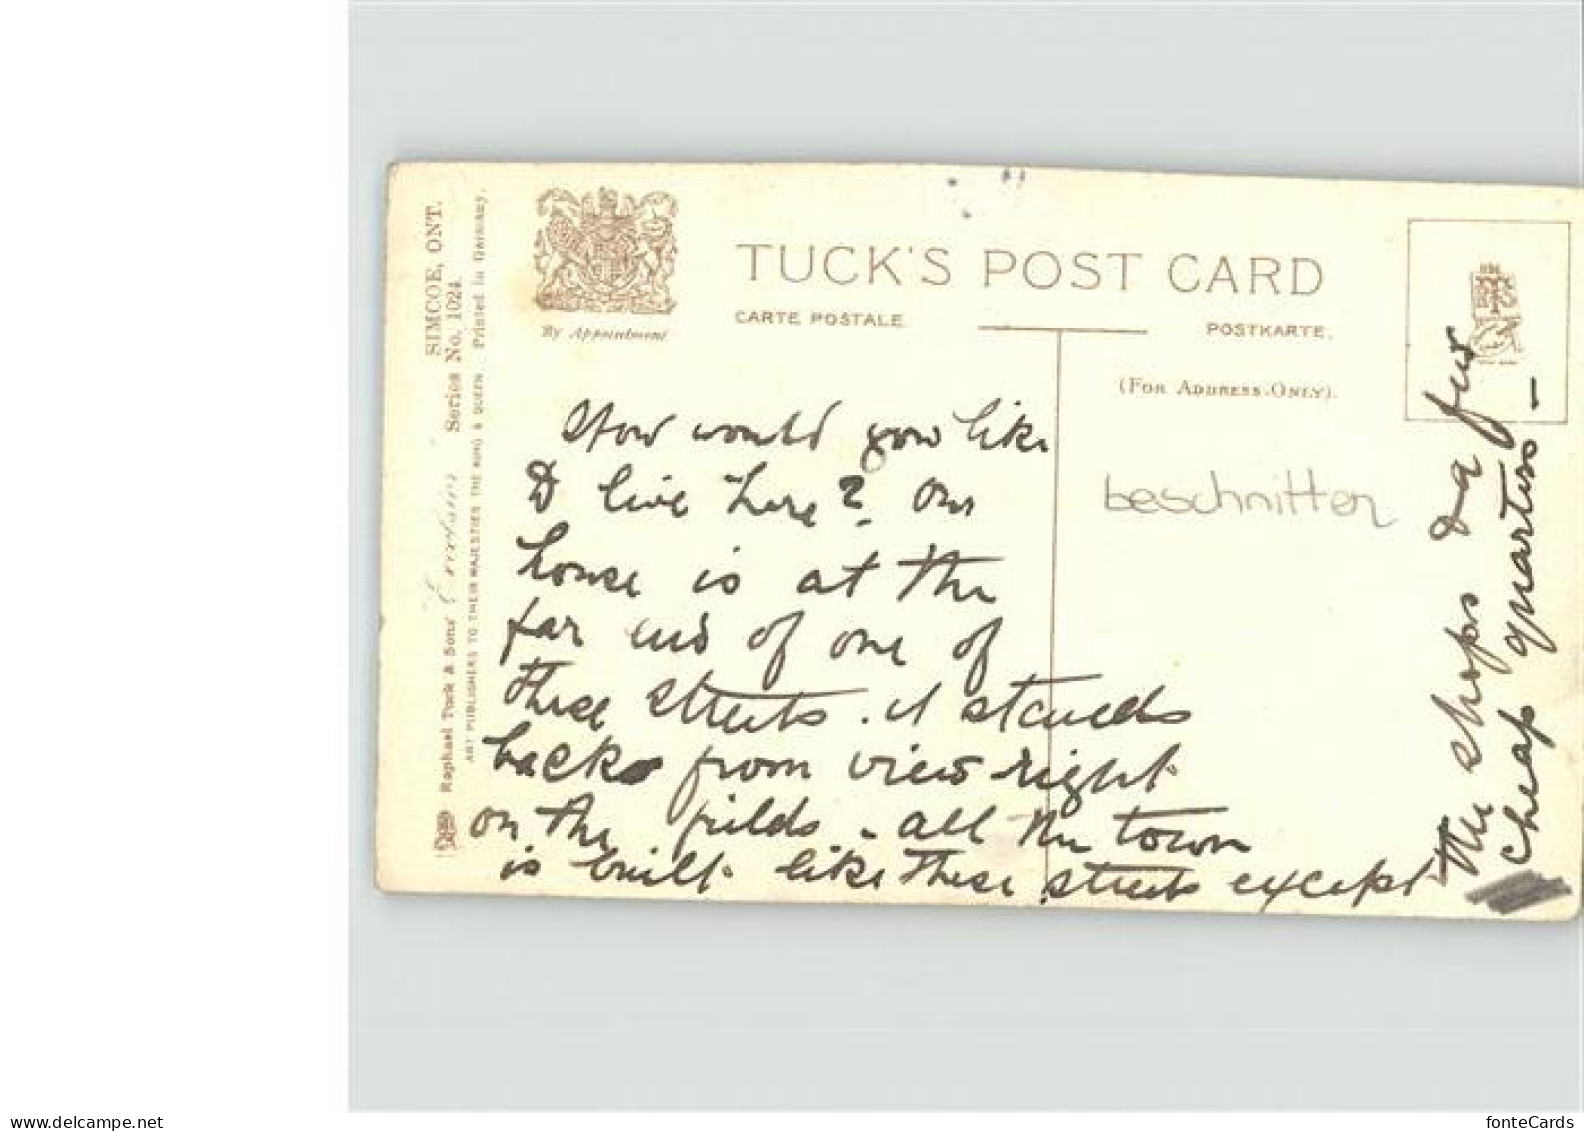 SIMCOE, ONT.
Series No. 1024.
Raphael Tuck & Sons'
ART PUBLISHERS TO THEIR MAJESTIES THE KING & QUEEN. Printed in Germany.
By Appointment
TUCK'S POST CARD
CARTE POSTALE
POSTKARTE.
(FOR ADDRESS ONLY).
beschnitten
How would you like
to live here? Our
house is at the
far end of one of
these streets. It stands
back from view right
on the fields - all the town
is built like these streets except
the shops & a few
cheap quarters -
fonteCards
www.delcampe.net